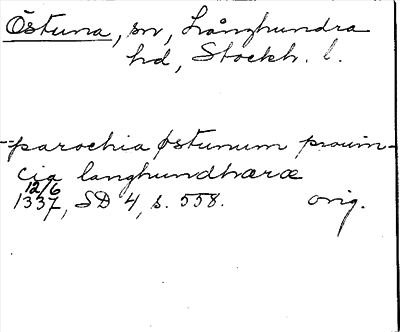 Östuna, sn, Långhundra
hd, Stockh. l.
parochia østunum prouin-
cia langhundhæræ
12/6
1337, SD 4, s. 558. orig.